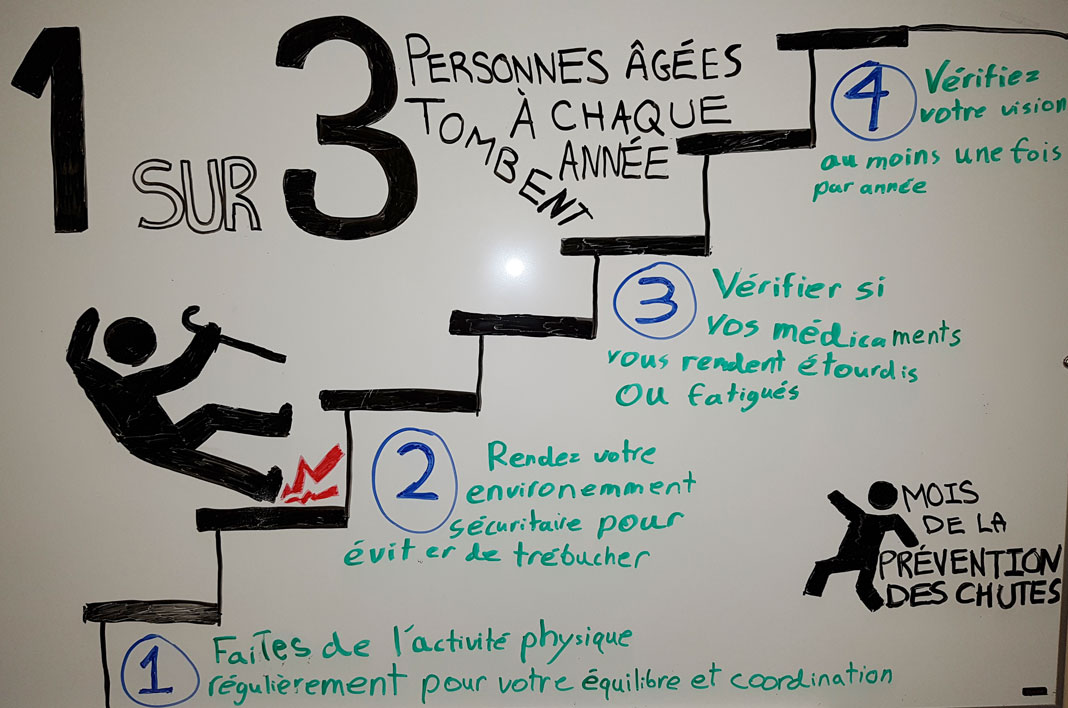 1 SUR 3
PERSONNES ÂGÉES
TOMBENT
À CHAQUE
ANNÉE
4 Vérifiez
votre vision
au moins une fois
par année
3 Vérifier si
vos médicaments
vous rendent étourdis
ou fatigués
2 Rendez votre
environemment
sécuritaire pour
éviter de trébucher
1 Faites de l'activité physique
régulièrement pour votre équilibre et coordination
MOIS
DE LA
PRÉVENTION
DES CHUTES